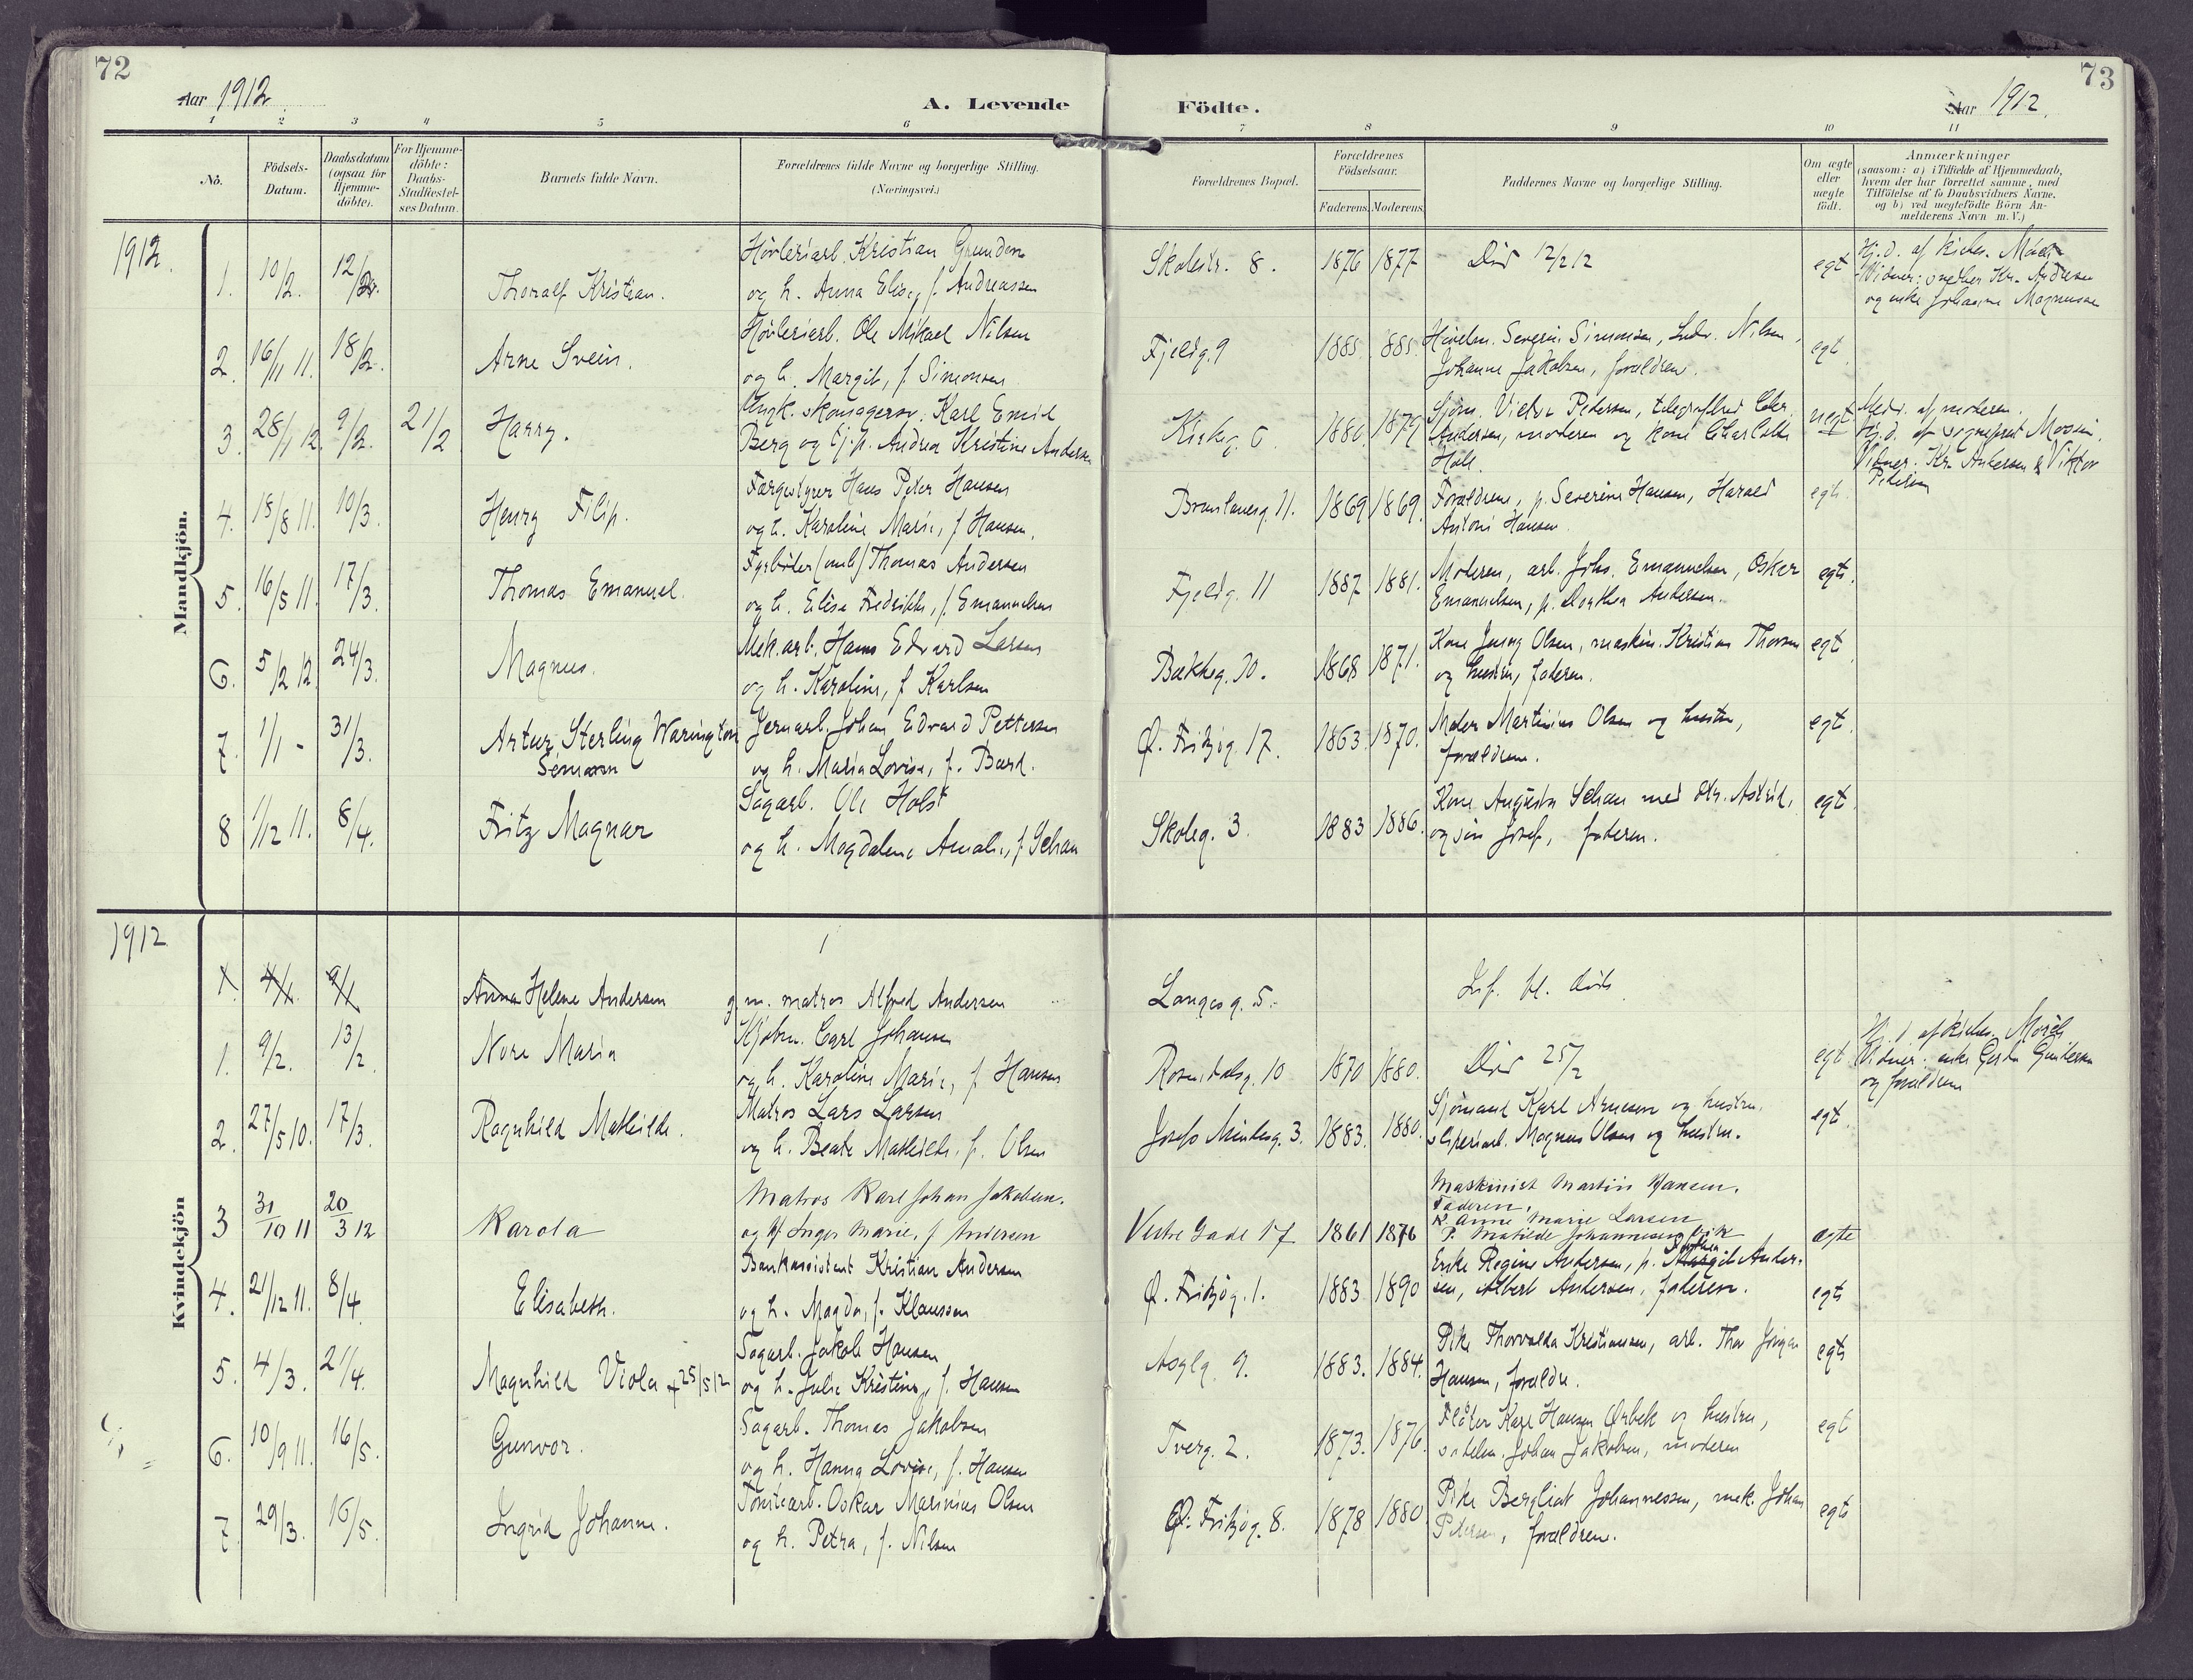 72
Aar 1912
A. Levende
1
2
3
4
5
6
No.
Födsels-Datum.
Daabsdatum (ogsaa for Hjemme-döbte).
For Hjemme-döbte: Daabs-Stadfæstel-ses Datum.
Barnets fulde Navn.
Forældrenes fulde Navne og borgerlige Stilling.
(Næringsvei.)
73
Födte.
Aar 1912.
7
8
9
10
11
Forældrenes Bopæl.
Forældrenes Födselsaar.
Faderens. Moderens.
Faddernes Navne og borgerlige Stilling.
Om ægte eller uægte födt.
Anmærkninger
(saasom: a) i Tilfælde af Hjemmedaab,
hvem der har forrettet samme, med
Tilföielse af to Daabsvidners Navne,
og b) ved uægtefödte Börn An-
melderens Navn m. V.)
1912.
Mandkjön.
1. 10/2. 12/2. Thoralf Kristian.
Høvleriarb. Kristian
og h. Anna Elise, f. Andreassen
Skolestr. 8. 1876 1877 Død 12/2 12 egt
Hj.d. af
Vidner: Kr. Andersen
og enke Johanne Magnussen
2. 16/11 11. 18/2. Arne Svein.
Høvleriarb. Ole Mikael Nilsen
og h. Margit, f. Simonsen
Fjeldg. 9 1885. 1885.
Severin Simonsen, Ludv. Nilsen,
Johanne Jakobsen, forældrene.
egt
3. 28/1 12. 9/2. 21/2 Harry.
Ungk. skomagersv. Karl Emil
Berg og tj.p. Andrea Kristine Andersen
Kirkeg. 6 1886. 1879
Sjøm. Victor Pedersen, telegrafbud
Andersen, moderen og kone Charlotte
Hall.
uegt
Medd. af moderen.
Hj.d. af
Vidner: Kr. Andersen & Viktor
Petersen
4. 15/8 11. 10/3. Henry Filip.
Hans Peter Hansen
og h. Karoline Marie, f. Hansen.
11. 1869 1869.
Forældrene, p. Severine Hansen, Harald
Antoni Hansen.
egt.
5. 16/5 11. 17/3. Thomas Emanuel.
Fyrbøter Thomas Andersen
og h. Elise Fredrikke, f. Emanuelsen
Fjeldg. 11 1887 1881.
Moderen, arb. Johs. Emanuelsen, Oskar
Emanuelsen, p. Dorthea Andersen.
egte.
6. 5/2 12. 24/3. Magnus.
Mek. arb. Hans Edvard Larsen
og h. Karoline, f. Karlsen
Bækkeg. 10. 1868 1871.
Kone Jenny Olsen, maskin. Kristian Thorsen
og hustru, faderen.
egt
7. 1/1 - 31/3. Artur Sterling Warington
Jernarb. Johan Edvard Pettersen
og h. Maria Lovise, f. Bard.
Ø. Fritzøg. 17. 1863 1870.
Maler Martinius Olsen og hustru,
forældrene.
egt.
8 1/12 11. 8/4. Fritz Magnar
Sagarb. Ole Holst
og h. Magdalene Amalie, f. Schau
Skoleg. 3. 1883 1886.
Kone Augusta Schau med dtr. Astrid,
og søn Josef, faderen.
egt.
1912
Kvindekjön
1. 4/1. 9/1 Anna Helene Andersen
g.m. matros Alfred Andersen
Langesg. 5. Inf. bl. døde
1. 9/2. 13/2 Nora Maria
Kjøbm. Carl Johansen
og h. Karoline Marie, f. Hansen
Rosendalsg. 10 1870 1880. Død 25/2 egt.
Hj. d. af
Vidner: enke Gundersen
og forældrene
2. 27/5 10. 17/3. Ragnhild Mathilde.
Matros Lars Larsen
og h. Beate Mathilde, f. Olsen
Josefs Mindesg. 3. 1883. 1880.
Sjømand Karl Arnesen og hustru,
sliperiarb. Magnus Olsen og hustru.
egt.
3 31/10 11 20/3 12 Karola
Matros Karl Johan Jakobsen.
og H. Inger Marie, f Andersen
Vestre Gade 17 1861 1876
Maskinist Martin Hansen.
Faderen,
K. Anne Marie Larsen
P. Matilde Johannessen
ægte
4. 21/12 11. 8/4. Elisabeth.
Bankassistent Kristian Andersen
og h. Magda, f. Klaussen
Ø. Fritzøg. 1. 1883 1890
Enke Regine Andersen, p. Margit Ander-
sen, Albert Andersen, faderen.
egte
5. 4/3. 21/4. Magnhild Viola + 25/5 12
Sagarb. Jakob Hansen
og h. Julie Kristine, f. Hansen
9. 1883. 1884.
Pike Thorvalda Kristiansen, arb. Thor
Hansen, forældre.
egte
6. 10/9 11. 16/5. Gunvor.
Sagarb. Thomas Jakobsen
og h. Hanna Lovise, f. Hansen
Tverg. 2. 1873. 1876.
Fløter Karl Hansen Ørbek og hustru,
Johan Jakobsen, moderen
egt
7 29/3. 16/5. Ingrid Johanne.
Tomtearb. Oskar Marinius Olsen
og h. Petra, f. Nilsen
Ø. Fritzøg. 8. 1878 1880
Pike Bergliot Johannessen, mek. Johan
Petersen, forældrene.
egte